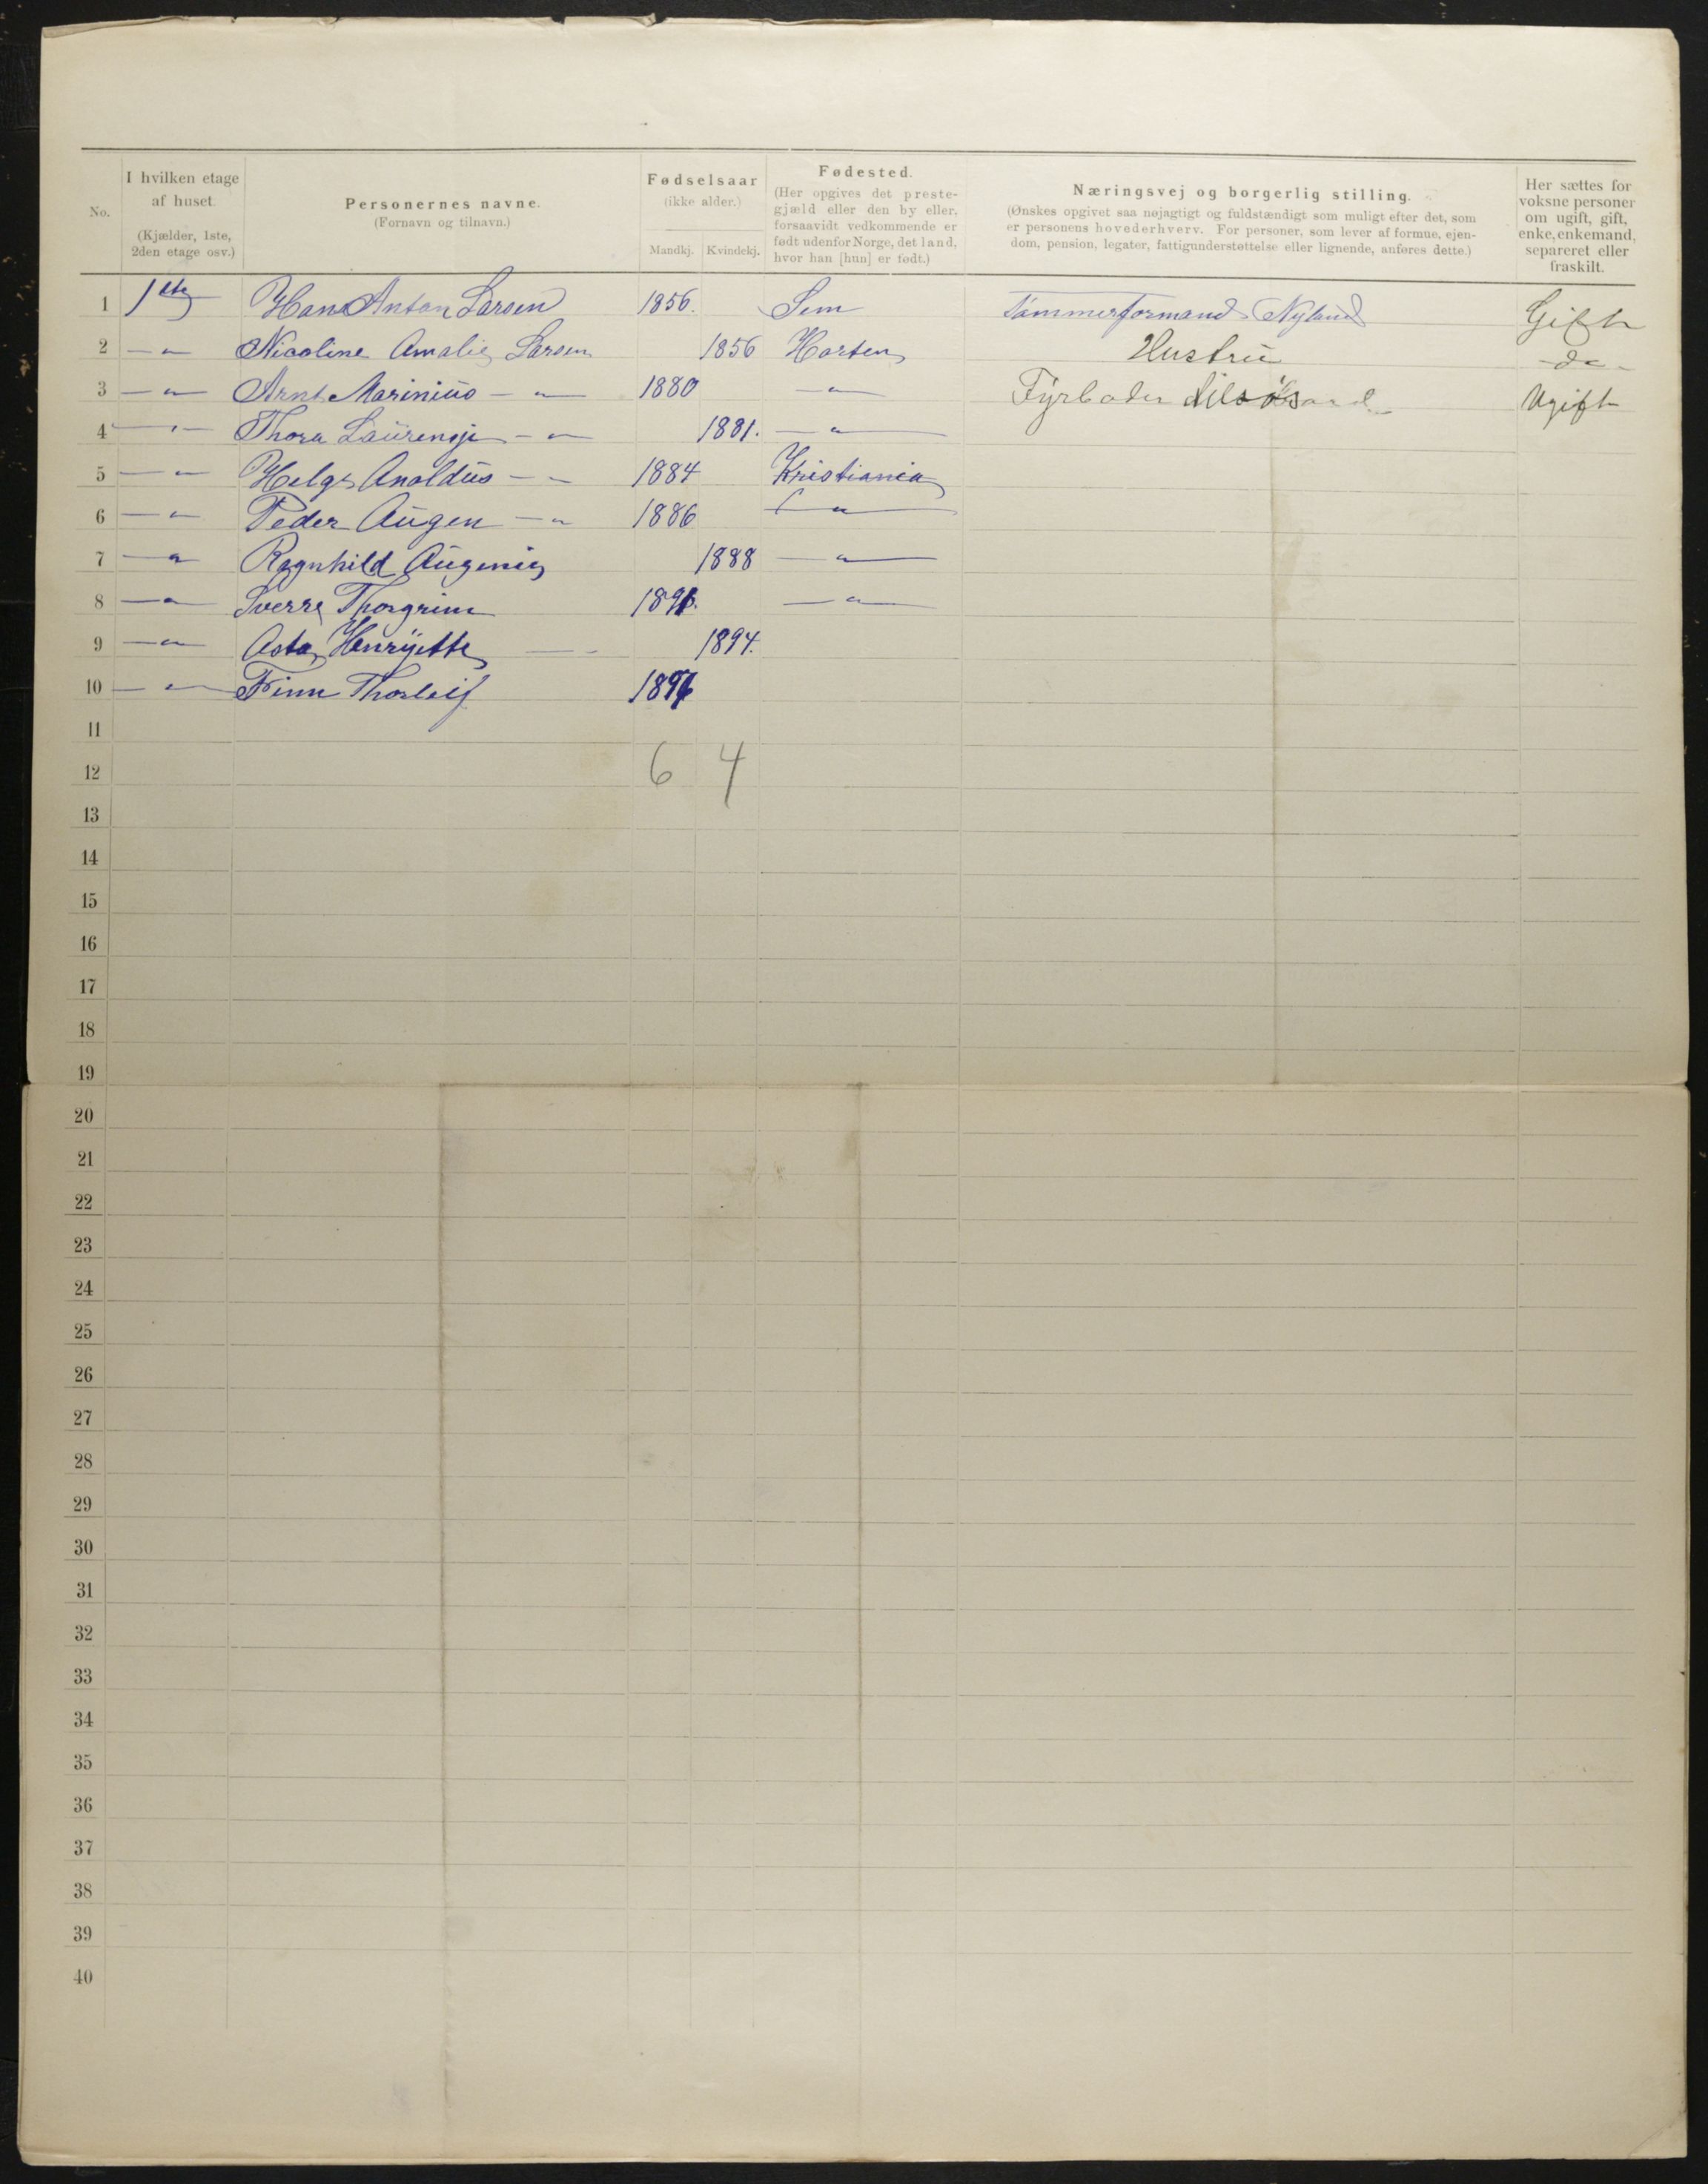 No.
I hvilken etage af huset. (Kjælder, 1ste, 2den etage osv.)
Personernes navne. (Fornavn og tilnavn.)
Fødselsaar (ikke alder.) Mandkj. Kvindekj.
Fødested. (Her opgives det prestegjæld eller den by eller, forsaavidt vedkommende er født udenfor Norge, det land, hvor han [hun] er født.)
Næringsvej og borgerlig stilling. (Ønskes opgivet saa nøjagtigt og fuldstændigt som muligt efter det, som er personens hovederhverv. For personer, som lever af formue, ejendom, pension, legater, fattigunderstøttelse eller lignende, anføres dette.)
Her sættes for voksne personer om ugift, gift, enke, enkemand, separeret eller fraskilt.
1 1ste Hans Anton Larsen 1856. Sem Tømmerformand Nyland Gift
2 — " — Nicoline Amalie Larsen 1856 Horten Hustru do
3 — " — Arnt Marinius — " — 1880 — " — Fyrbøder Ugift
4 — " — Thora Laurensje — " — 1881. — " —
5 — " — Helge Anoldus — " — 1884 Kristiania
6 — " — Peder Augen — " — 1886 — " —
7 — " — Ragnhild Augenie 1888 — " —
8 — " — Sverre Thorgrim — " —
9 — " — Asta Henrijette — 1894.
10 — " — Finn Thorleif
11
12 6 4
13
14
15
16
17
18
19
20
21
22
23
24
25
26
27
28
29
30
31
32
33
34
35
36
37
38
39
40